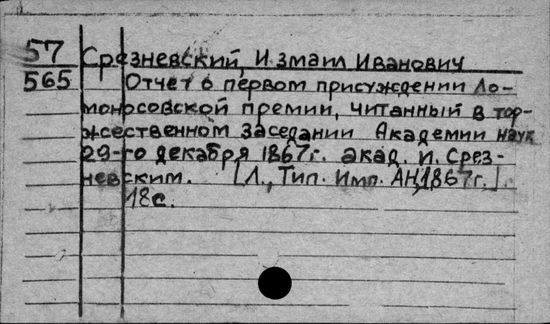 57 Срезневский, Измаил Иванович
565 Отчет о первом присуждении Ло-
моносовской премии, читанный в тор-
жественном заседании Академии наук
29-го декабря 1867г. акад. И. Срез-
невским. [Л., Тип. Имп. АН, 1867г.].
18с.